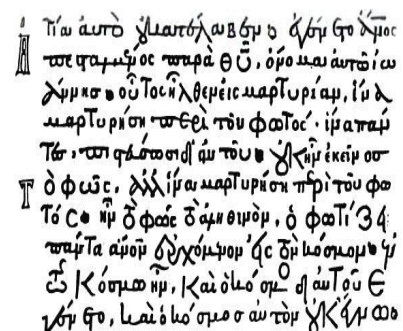 τία αὐτὸ οὐ κατέλαβεν· ἐγένετο ἄνος
ἀπεσταλμένος παρὰ θῦ, ὄνομα αὐτῶ ἰω
άννης· οὗτος ἦλθεν εἰς μαρτυρίαν, ἵνα
μαρτυρήση περὶ τοῦ φωτός· ἵνα πάν
τες πιστεύσωσι δι' αὐτοῦ· οὐκ ἦν ἐκεῖνος
τὸ φῶς, ἀλλ' ἵνα μαρτυρήση περὶ τοῦ φω
τός· ἦν τὸ φῶς τὸ ἀληθινὸν, ὃ φωτίζει
πάντα ἄνον ἐρχόμενον εἰς τὸν κόσμον· ἐν
τῶ κόσμω ἦν, καὶ ὁ κόσμος δι' αὐτοῦ ἐ
γένετο, καὶ ὁ κόσμος αὐτὸν οὐκ ἔγνω